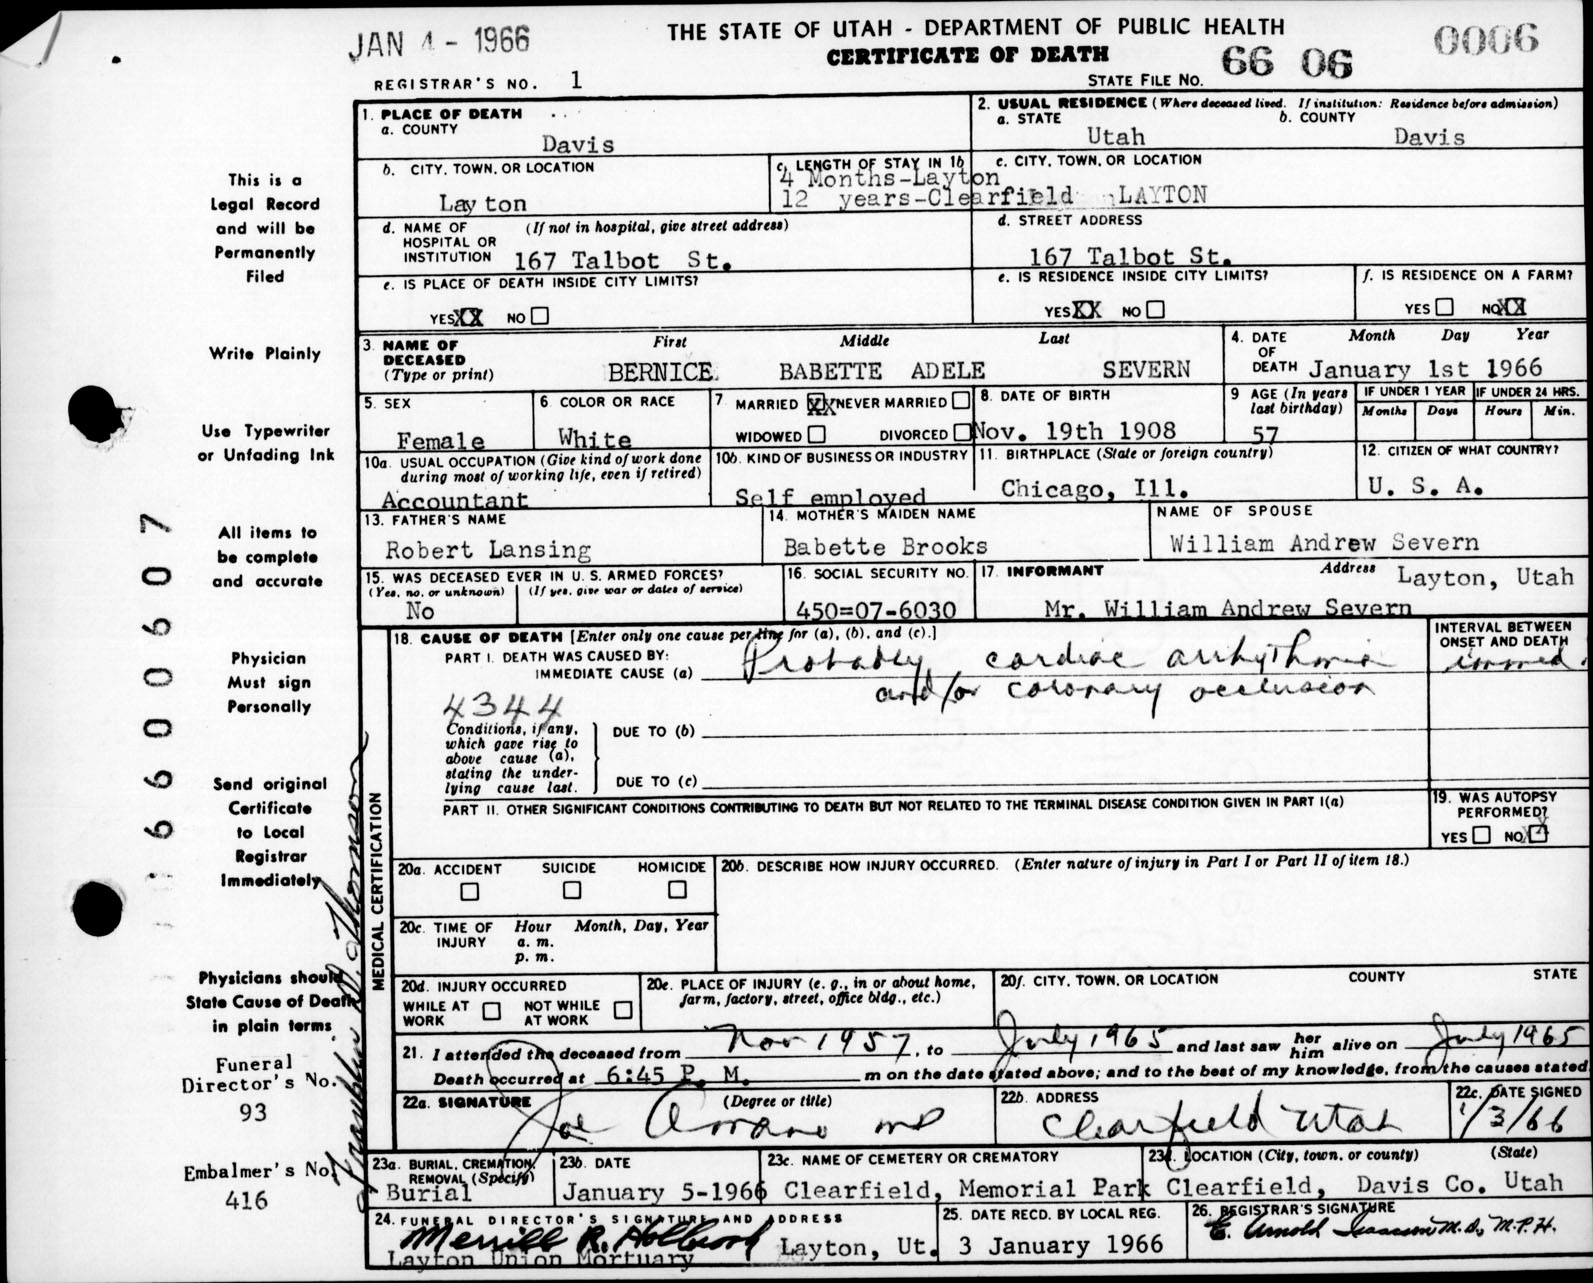 JAN 4 - 1966
THE STATE OF UTAH - DEPARTMENT OF PUBLIC HEALTH
CERTIFICATE OF DEATH
0006
REGISTRAR'S NO. 1
STATE FILE NO. 66 06
1. PLACE OF DEATH
a. COUNTY
Davis
2. USUAL RESIDENCE (Where deceased lived. If institution: Residence before admission)
a. STATE
Utah
b. COUNTY
Davis
b. CITY, TOWN, OR LOCATION
Layton
c. LENGTH OF STAY IN 1b
4 Months-Layton
12 years-Clearfield
c. CITY, TOWN, OR LOCATION
LAYTON
d. NAME OF HOSPITAL OR INSTITUTION
(If not in hospital, give street address)
167 Talbot St.
d. STREET ADDRESS
167 Talbot St.
e. IS PLACE OF DEATH INSIDE CITY LIMITS?
YES XX NO
e. IS RESIDENCE INSIDE CITY LIMITS?
YES XX NO
f. IS RESIDENCE ON A FARM?
YES NO XX
3. NAME OF DECEASED
(Type or print)
First Middle Last
BERNICE BABETTE ADELE SEVERN
4. DATE OF DEATH
Month Day Year
January 1st 1966
5. SEX
Female
6. COLOR OR RACE
White
7. MARRIED XX NEVER MARRIED
WIDOWED DIVORCED
8. DATE OF BIRTH
Nov. 19th 1908
9 AGE (In years last birthday)
57
IF UNDER 1 YEAR
Months Days
IF UNDER 24 HRS.
Hours Min.
10a. USUAL OCCUPATION (Give kind of work done during most of working life, even if retired)
Accountant
10b. KIND OF BUSINESS OR INDUSTRY
Self employed
11. BIRTHPLACE (State or foreign country)
Chicago, Ill.
12. CITIZEN OF WHAT COUNTRY?
U. S. A.
13. FATHER'S NAME
Robert Lansing
14. MOTHER'S MAIDEN NAME
Babette Brooks
NAME OF SPOUSE
William Andrew Severn
15. WAS DECEASED EVER IN U. S. ARMED FORCES?
(Yes, no, or unknown) (If yes, give war or dates of service)
No
16. SOCIAL SECURITY NO.
450=07-6030
17. INFORMANT Address
Layton, Utah
Mr. William Andrew Severn
MEDICAL CERTIFICATION
18. CAUSE OF DEATH [Enter only one cause per line for (a), (b), and (c).]
PART I. DEATH WAS CAUSED BY:
IMMEDIATE CAUSE (a) Probably cardiac arrhythmia
and/or coronary occlusion
INTERVAL BETWEEN ONSET AND DEATH
immed.
4344
Conditions, if any, which gave rise to above cause (a), stating the underlying cause last.
DUE TO (b)
DUE TO (c)
PART II. OTHER SIGNIFICANT CONDITIONS CONTRIBUTING TO DEATH BUT NOT RELATED TO THE TERMINAL DISEASE CONDITION GIVEN IN PART I(a)
19. WAS AUTOPSY PERFORMED?
YES NO X
20a. ACCIDENT SUICIDE HOMICIDE
20b. DESCRIBE HOW INJURY OCCURRED. (Enter nature of injury in Part I or Part II of item 18.)
20c. TIME OF INJURY
Hour Month, Day, Year
a. m.
p. m.
20d. INJURY OCCURRED
WHILE AT WORK NOT WHILE AT WORK
20e. PLACE OF INJURY (e. g., in or about home, farm, factory, street, office bldg., etc.)
20f. CITY, TOWN, OR LOCATION COUNTY STATE
21. I attended the deceased from Nov 1957, to July 1965 and last saw her him alive on July 1965
Death occurred at 6:45 P. M. m on the date stated above; and to the best of my knowledge, from the causes stated.
22a. SIGNATURE (Degree or title)
Joe Amano MD
22b. ADDRESS
Clearfield Utah
22c. DATE SIGNED
1/3/66
23a. BURIAL, CREMATION, REMOVAL (Specify)
Burial
23b. DATE
January 5-1966
23c. NAME OF CEMETERY OR CREMATORY
Clearfield, Memorial Park
23d. LOCATION (City, town, or county) (State)
Clearfield, Davis Co. Utah
24. FUNERAL DIRECTOR'S SIGNATURE AND ADDRESS
Merrill R. Holbrook
Layton Union Mortuary
Layton, Ut.
25. DATE RECD. BY LOCAL REG.
3 January 1966
26. REGISTRAR'S SIGNATURE
E. Arnold Isaacson M.D., M.P.H.
This is a
Legal Record
and will be
Permanently
Filed
Write Plainly
Use Typewriter
or Unfading Ink
All items to
be complete
and accurate
Physician
Must sign
Personally
Send original
Certificate
to Local
Registrar
Immediately
Physicians should
State Cause of Death
in plain terms
Funeral
Director's No.
93
Embalmer's No.
416
Franklin D. Thomson
6600607